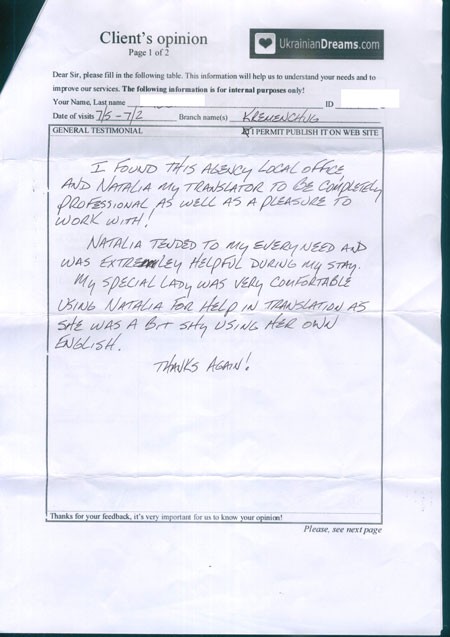 Client's opinion
Page 1 of 2
UkrainianDreams.com
Dear Sir, please fill in the following table. This information will help us to understand your needs and to
improve our services. The following information is for internal purposes only!
Your Name, Last name ID
Date of visits 7/5 - 7/2 Branch name(s) KREMENCHUG
GENERAL TESTIMONIAL I PERMIT PUBLISH IT ON WEB SITE
I FOUND THIS AGENCY LOCAL OFFICE
AND NATALIA MY TRANSLATOR TO BE COMPLETELY
PROFESSIONAL AS WELL AS A PLEASURE TO
WORK WITH!
NATALIA TENDED TO MY EVERY NEED AND
WAS EXTREMLEY HELPFUL DURING MY STAY.
MY SPECIAL LADY WAS VERY COMFORTABLE
USING NATALIA FOR HELP IN TRANSLATION AS
SHE WAS A BIT SHY USING HER OWN
ENGLISH.
THANKS AGAIN!
Thanks for your feedback, it's very important for us to know your opinion!
Please, see next page